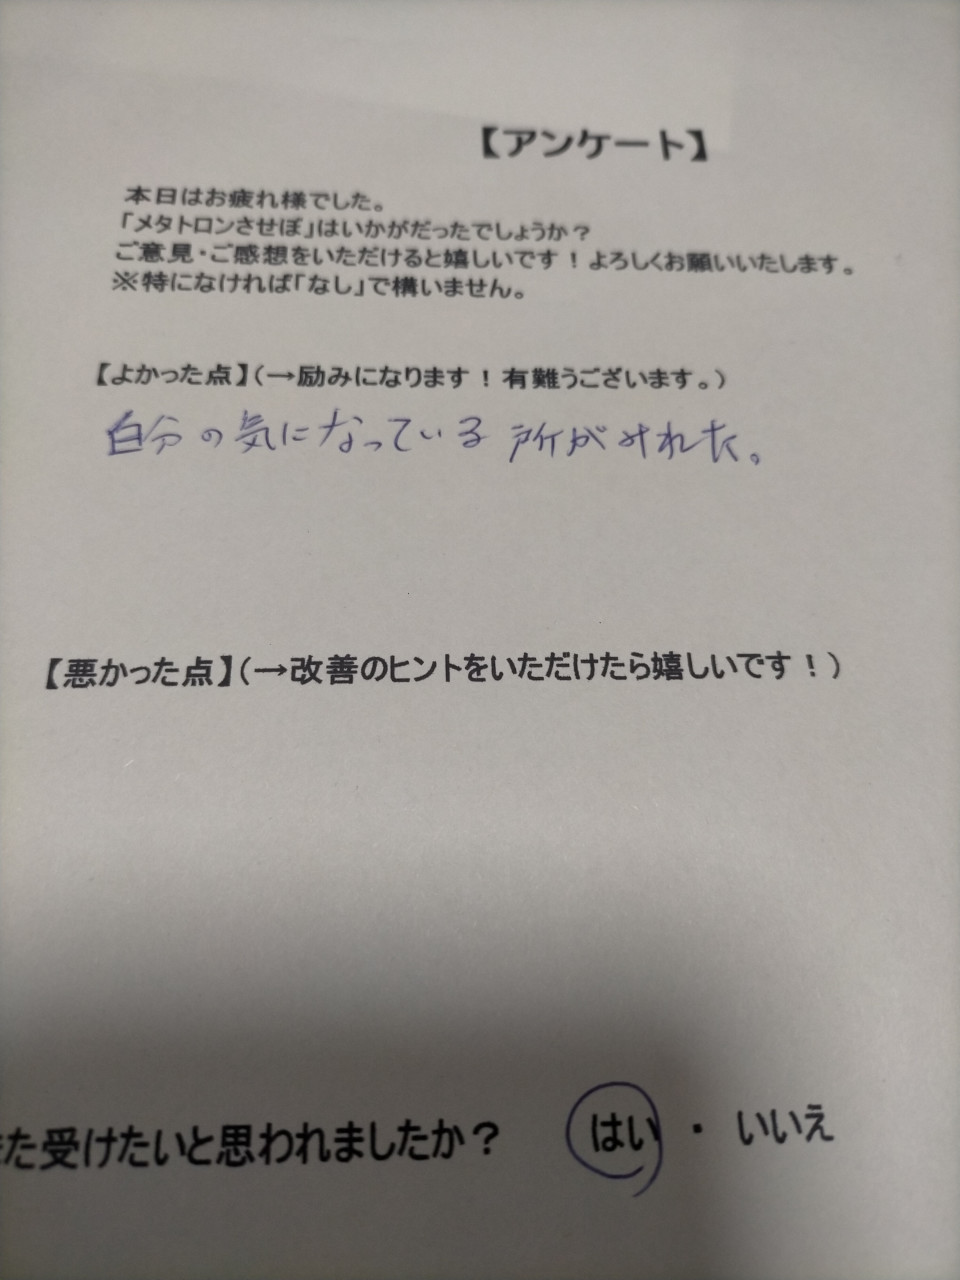 【アンケート】
本日はお疲れ様でした。
「メタトロンさせぼ」はいかがだったでしょうか？
ご意見・ご感想をいただけると嬉しいです！よろしくお願いいたします。
※特になければ「なし」で構いません。
【よかった点】（→励みになります！有難うございます。）
自分の気になっている所がみれた。
【悪かった点】（→改善のヒントをいただけたら嬉しいです！）
また受けたいと思われましたか？　はい・いいえ